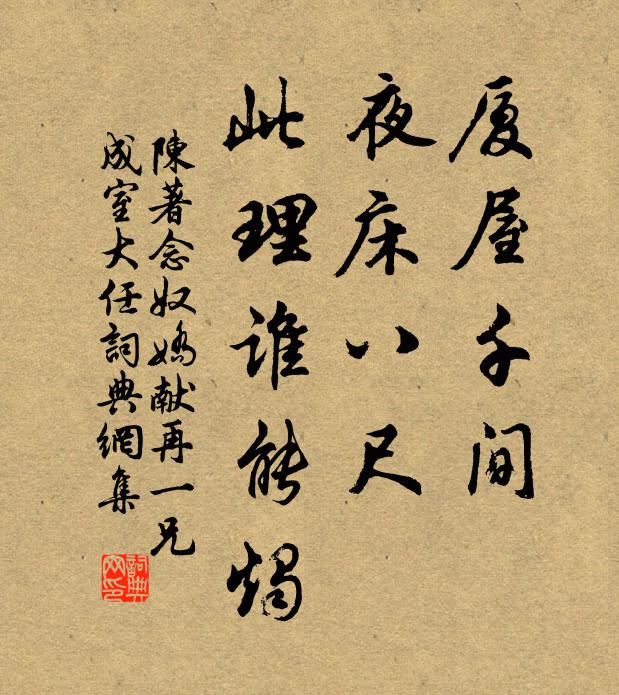 厦屋千间
夜床八尺
此理谁能烛
陳著念奴嬌献再一兄
成室大任詞典網集
詞典
网印